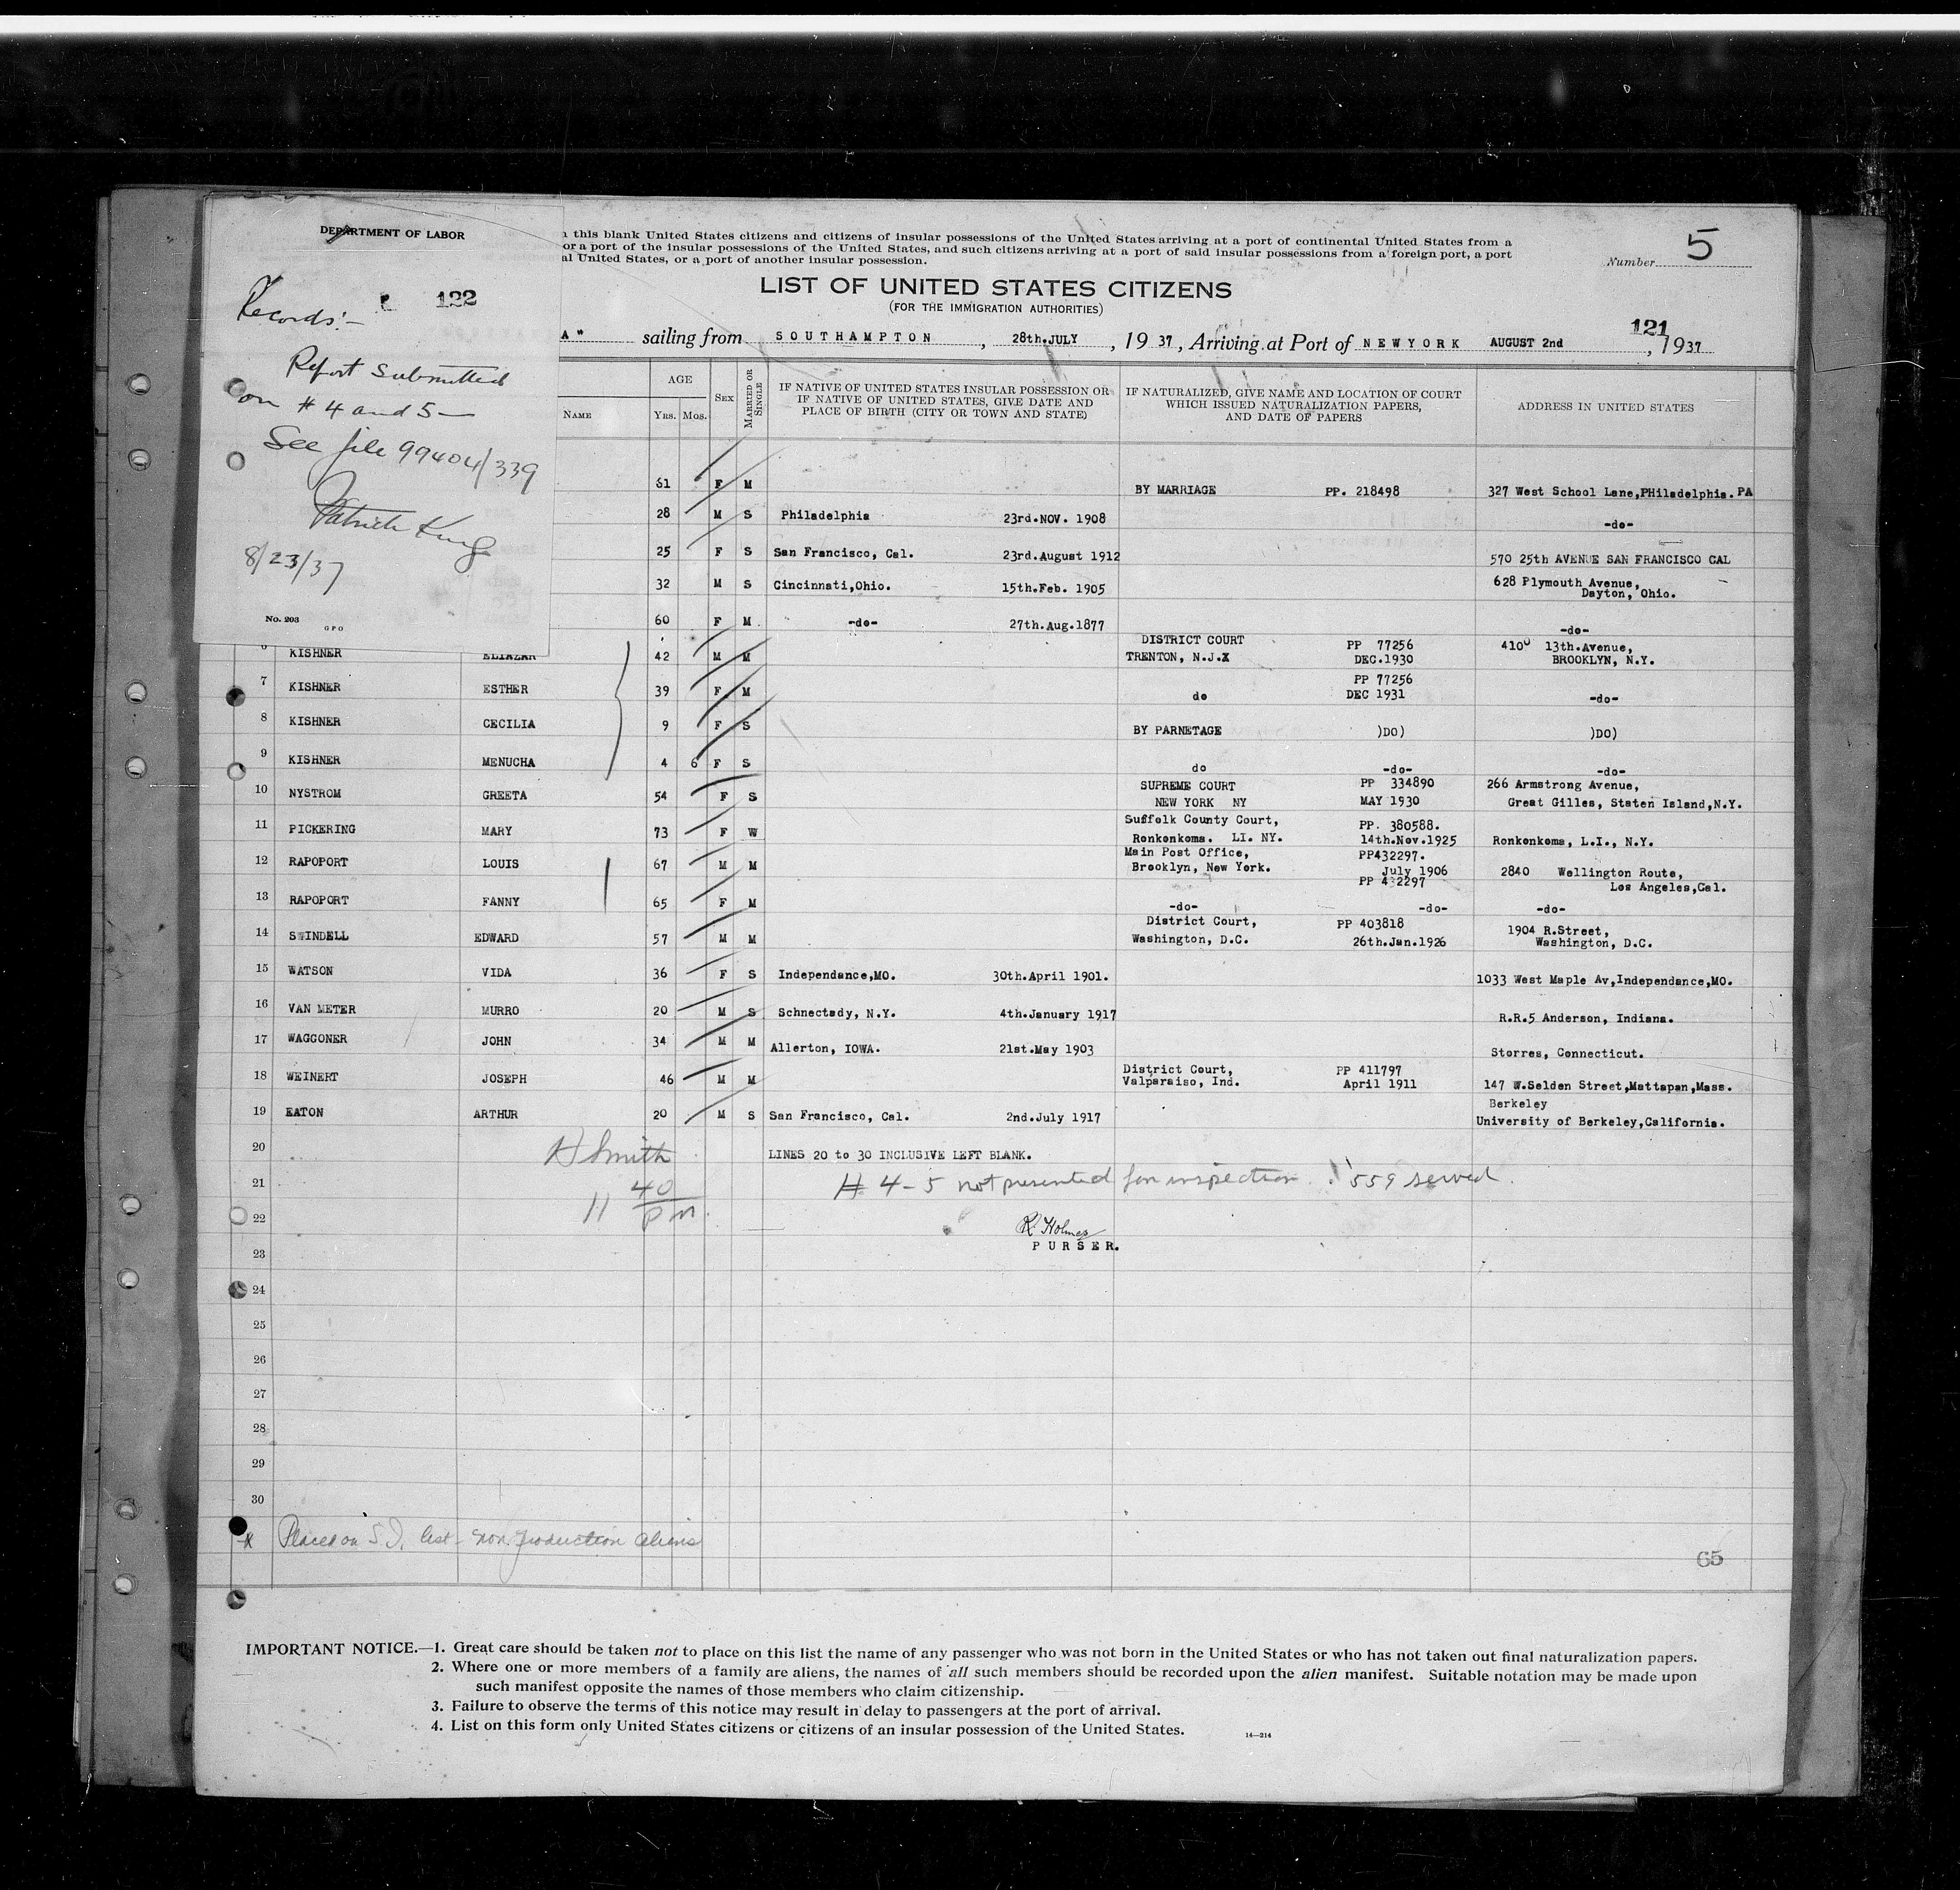 DEPARTMENT OF LABOR
Records:-
122
Report submitted
on # 4 and 5 —
See file 99404/339
Patrick King
8/23/37
No. 203
GPO
this blank United States citizens and citizens of insular possessions of the United States arriving at a port of continental United States from a
or a port of the insular possessions of the United States, and such citizens arriving at a port of said insular possessions from a foreign port, a port
al United States, or a port of another insular possession.
Number 5
LIST OF UNITED STATES CITIZENS
(FOR THE IMMIGRATION AUTHORITIES)
121
A" sailing from SOUTHAMPTON, 28th.JULY, 1937, Arriving at Port of NEWYORK AUGUST 2nd, 1937
NAME AGE Yrs. Mos. SEX MARRIED OR SINGLE IF NATIVE OF UNITED STATES INSULAR POSSESSION OR IF NATIVE OF UNITED STATES, GIVE DATE AND PLACE OF BIRTH (CITY OR TOWN AND STATE) IF NATURALIZED, GIVE NAME AND LOCATION OF COURT WHICH ISSUED NATURALIZATION PAPERS, AND DATE OF PAPERS ADDRESS IN UNITED STATES
61 F M BY MARRIAGE PP. 218498 327 West School Lane,PHiladelphia. PA
28 M S Philadelphia 23rd.NOV. 1908 -do-
25 F S San Francisco, Cal. 23rd.August 1912 570 25th AVENUE SAN FRANCISCO CAL
32 M S Cincinnati,Ohio. 15th.Feb. 1905 628 Plymouth Avenue, Dayton, Ohio.
60 F M -do- 27th.Aug.1877 -do-
6 KISHNER ELIAZAR 42 M M DISTRICT COURT TRENTON, N.J.X PP 77256 DEC.1930 4100 13th.Avenue, BROOKLYN, N.Y.
7 KISHNER ESTHER 39 F M do PP 77256 DEC 1931 -do-
8 KISHNER CECILIA 9 F S BY PARNETAGE )DO) )DO)
9 KISHNER MENUCHA 4 6 F S do -do- -do-
10 NYSTROM GREETA 54 F S SUPREME COURT NEW YORK NY PP 334890 MAY 1930 266 Armstrong Avenue, Great Gilles, Staten Island,N.Y.
11 PICKERING MARY 73 F W Suffolk County Court, Ronkonkoma. LI. NY. PP. 380588. 14th.Nov.1925 Ronkonkoma, L.I., N.Y.
12 RAPOPORT LOUIS 67 M M Main Post Office, Brooklyn, New York. PP432297. July 1906 2840 Wellington Route, Los Angeles,Cal.
13 RAPOPORT FANNY 65 F M -do- PP 432297 -do- -do-
14 SWINDELL EDWARD 57 M M District Court, Washington, D.C. PP 403818 26th.Jan.1926 1904 R.Street, Washington, D.C.
15 WATSON VIDA 36 F S Independance,MO. 30th.April 1901. 1033 West Maple Av,Independance,MO.
16 VAN METER MURRO 20 M S Schnectady, N.Y. 4th.January 1917 R.R.5 Anderson, Indiana.
17 WAGGONER JOHN 34 M M Allerton, IOWA. 21st.May 1903 Storres, Connecticut.
18 WEINERT JOSEPH 46 M M District Court, Valparaiso, Ind. PP 411797 April 1911 147 W.Selden Street,Mattapan,Mass.
19 EATON ARTHUR 20 M S San Francisco, Cal. 2nd.July 1917 Berkeley University of Berkeley,California.
20 H Smith LINES 20 to 30 INCLUSIVE LEFT BLANK.
21 11 40 pm # 4-5 not presented for inspection. 559 served.
22 R Holmes
23 PURSER.
24
25
26
27
28
29
30
x Placed on S.I. list - non production aliens
65
IMPORTANT NOTICE.—1. Great care should be taken not to place on this list the name of any passenger who was not born in the United States or who has not taken out final naturalization papers.
2. Where one or more members of a family are aliens, the names of all such members should be recorded upon the alien manifest. Suitable notation may be made upon
such manifest opposite the names of those members who claim citizenship.
3. Failure to observe the terms of this notice may result in delay to passengers at the port of arrival.
4. List on this form only United States citizens or citizens of an insular possession of the United States.
14—214